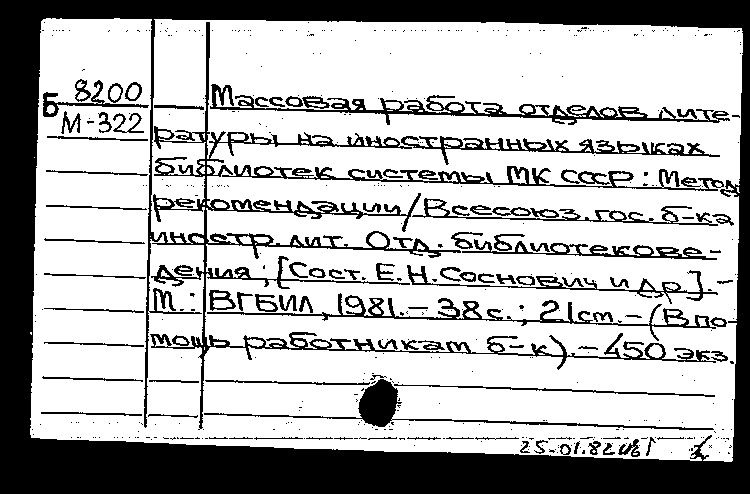 Б 8200
М-322
Массовая работа отделов лите-
ратуры на иностранных языках
библиотек системы МК СССР: Метод.
рекомендации/Всесоюз. гос. б-ка
иностр. лит. Отд. библиотекове-
дения; [Сост. Е.Н. Соснович и др]. -
М.: ВГБИЛ, 1981. - 38с.; 21см. - (В по-
мощь работникам б-к). - 450 экз.
25-01.82